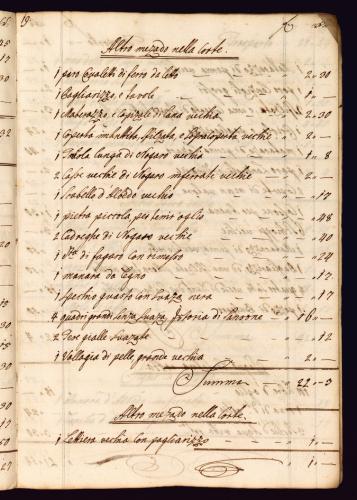 19
Altro mezado nella Corte.
1 paro Cavaletti di ferro da letto " 2 " 30
1 Pagliarizzo, e tavole " 1 " —
1 Matarazzo, e Capizale di lana vechia " 2 " 30
1 Coperta imbotita, filzata, e sopracoperta vechie " 2 " —
1 Tavola longa di Nogaro vechia " 1 " 8
2 Casse vechie di Nogaro inferrate vechie " 2 " —
1 Scabello d'Albeo vechio " " 17
1 pietra piccola, per oglio " " 48
2 Cadreghe di Nogaro vechie " " 40
1 di fagaro con rimesso " " 24
1 manara da legno " " 12
1 Spechio guasto con Suaza nera " " 17
4 quadri grandi senza suaza Istoria di " 16 " —
2 gialle suazate " " 12
1 Vallagia di pelle grande vechia " 2 " —
Summa 22 " 3
Altro mezado nella Corte.
1 Lettiera vechia con pagliarizzo " 1 " —
1 " —